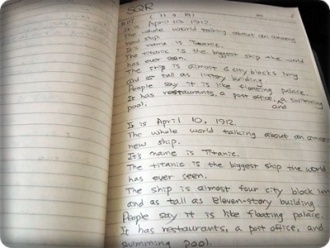 SQR
Is April 10, 1912.
The whole world talking about an
new ship.
It's name is Titanic.
The titanic is the biggest ship the world
has ever seen.
The ship is almost 4 city block's long
and as tall as building
People say it is like floating palace.
It has restaurants, a post office, a swimming
pool. and
Is is April 10, 1912.
The whole world talking about an
new ship.
It's name is Titanic.
The titanic is the biggest ship the world
has ever seen.
The ship is almost four city block
and as tall as Eleven-story building
People say it is like floating palace
It has restaurants, a post office, and
swimming pool.